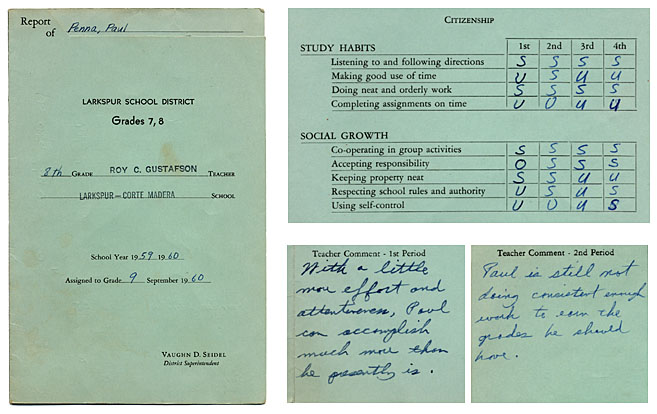 Report of Penna, Paul
LARKSPUR SCHOOL DISTRICT
Grades 7, 8
8th GRADE ROY C. GUSTAFSON TEACHER
LARKSPUR — CORTE MADERA SCHOOL
School Year 1959 1960
Assigned to Grade 9 September 1960
VAUGHN D. SEIDEL
District Superintendent
CITIZENSHIP
STUDY HABITS 1st 2nd 3rd 4th
Listening to and following directions S S S S
Making good use of time U S U U
Doing neat and orderly work S S S S
Completing assignments on time U U U U
SOCIAL GROWTH
Co-operating in group activities S S S S
Accepting responsibility O S S S
Keeping property neat S S U U
Respecting school rules and authority U S U S
Using self-control U U U S
Teacher Comment - 1st Period
With a little
more effort and
attentiveness, Paul
can accomplish
much more than
he presently is.
Teacher Comment - 2nd Period
Paul is still not
doing consistent enough
work to earn the
grades he should
have.